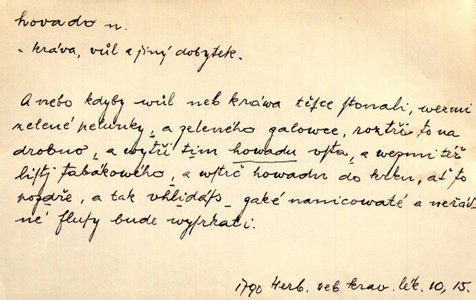 hovado n.
- kráva, vůl a jiný dobytek.
A nebo kdyby wůl neb kráwa těſce ſtonali, wezmi
zelené pelunky, a zeleného galowce, roztři to na
drobno, a wytři tim howadu uſta, a wezmi též
liſtj tabákowého, a wſtrč howadu do krku, ať to
požře, a tak uhlidáſs, gaké nanicowaté a neřád-
né fluſy bude wyſrkati.
1790 Herb. neb krav. lék. 10, 15.